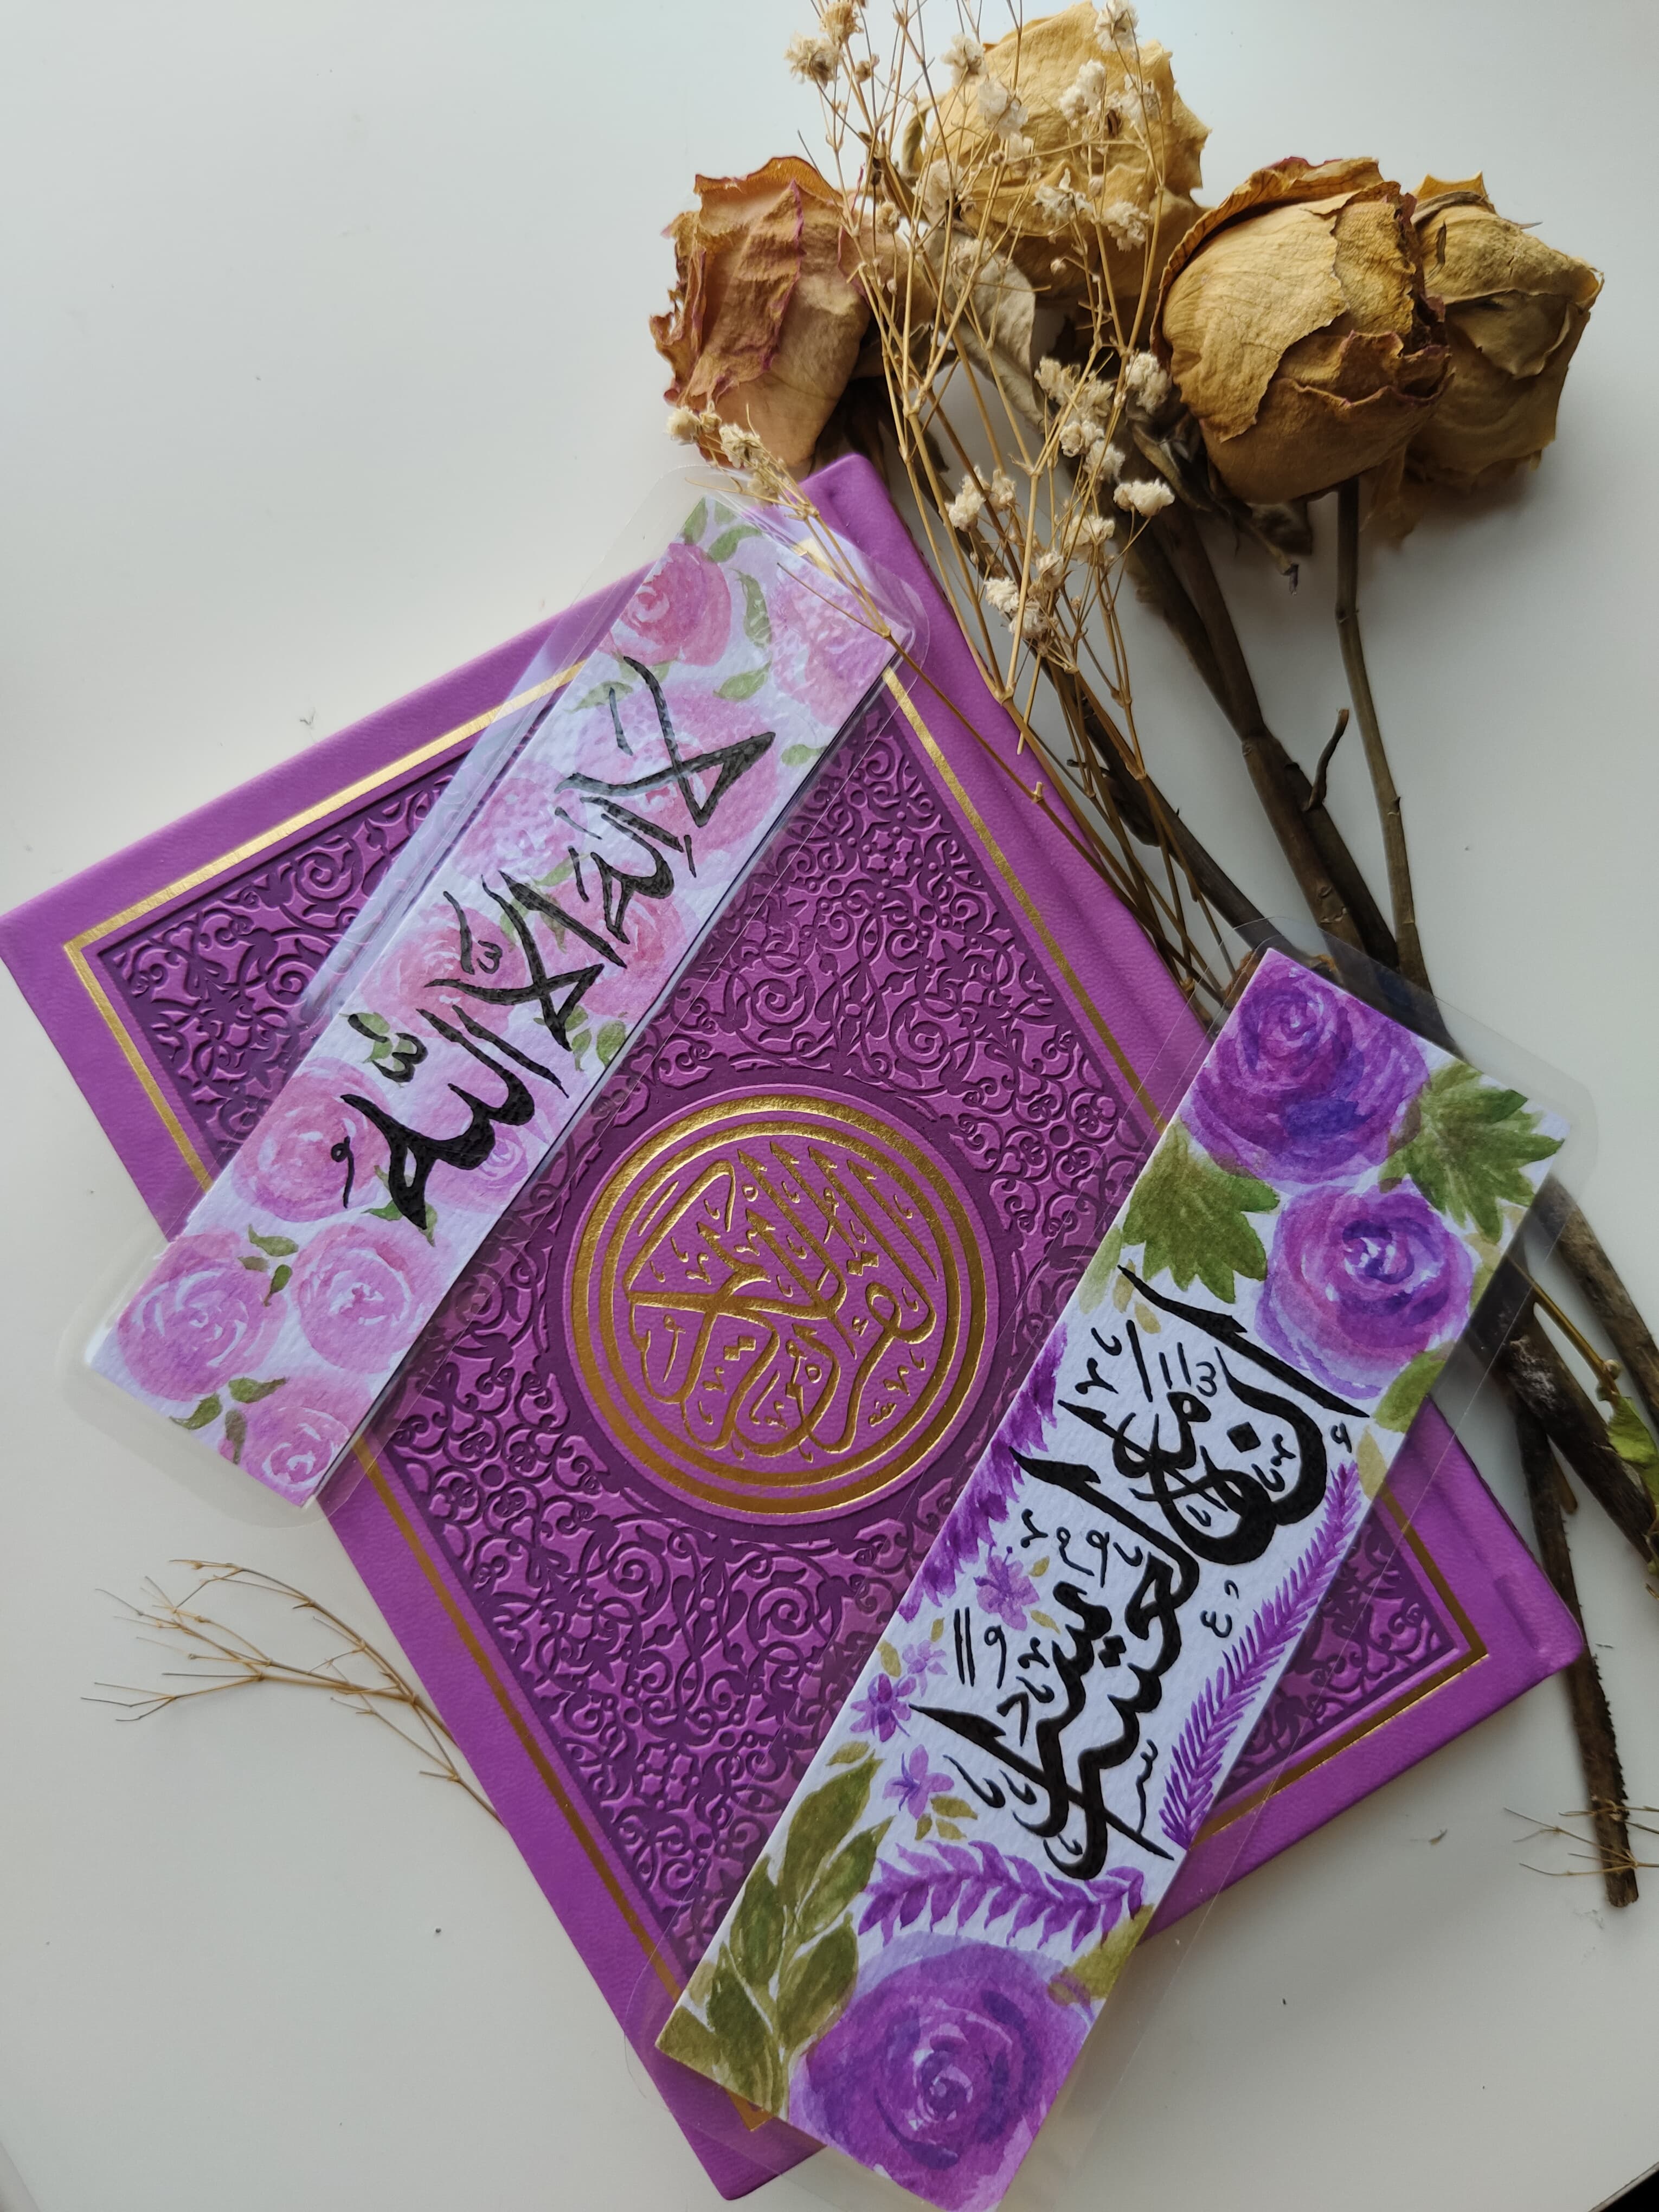 لا اله الّا اللّه
القرآن الكريم
إِنَّ مَعَ الْعُسْرِ يُسْرًا